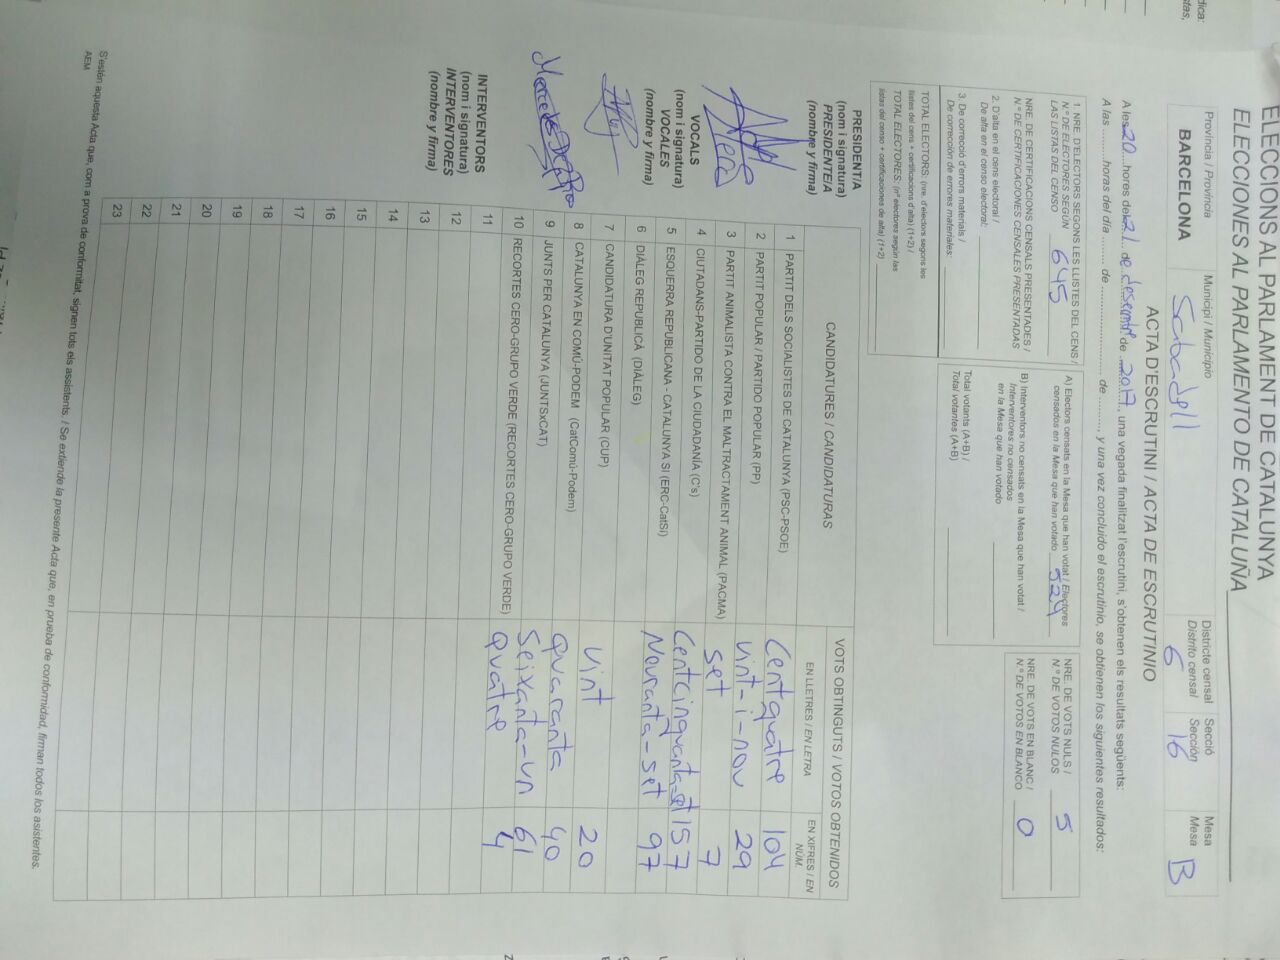 ELECCIONS AL PARLAMENT DE CATALUNYA
ELECCIONES AL PARLAMENTO DE CATALUÑA
Província / Provincia
BARCELONA
Municipi / Municipio
Sabadell
Districte censal
Distrito censal
6
Secció
Sección
16
Mesa
Mesa
B
ACTA D'ESCRUTINI / ACTA DE ESCRUTINIO
A les 20 hores del 21 de desembre de 2017, una vegada finalitzat l'escrutini, s'obtenen els resultats següents:
A las ......... horas del día ......... de ........................... de ........, y una vez concluido el escrutinio, se obtienen los siguientes resultados:
1. NRE. D'ELECTORS SEGONS LES LLISTES DEL CENS /
N.º DE ELECTORES SEGÚN
LAS LISTAS DEL CENSO 645
NRE. DE CERTIFICACIONS CENSALS PRESENTADES /
N.º DE CERTIFICACIONES CENSALES PRESENTADAS
2. D'alta en el cens electoral /
De alta en el censo electoral:
3. De correcció d'errors materials /
De corrección de errores materiales:
TOTAL ELECTORS: (nre. d'electors segons les
llistes del cens + certificacions d'alta) (1+2) /
TOTAL ELECTORES: (nº electores según las
listas del censo + certificaciones de alta) (1+2)
A) Electors censats en la Mesa que han votat / Electores
censados en la Mesa que han votado 524
B) Interventors no censats en la Mesa que han votat /
Interventores no censados
en la Mesa que han votado
Total votants (A+B) /
Total votantes (A+B)
NRE. DE VOTS NULS /
N.º DE VOTOS NULOS 5
NRE. DE VOTS EN BLANC /
N.º DE VOTOS EN BLANCO 0
PRESIDENT/A
(nom i signatura)
PRESIDENTE/A
(nombre y firma)
VOCALS
(nom i signatura)
VOCALES
(nombre y firma)
INTERVENTORS
(nom i signatura)
INTERVENTORES
(nombre y firma)
CANDIDATURES / CANDIDATURAS
VOTS OBTINGUTS / VOTOS OBTENIDOS
EN LLETRES / EN LETRA
EN XIFRES / EN NÚM.
1 PARTIT DELS SOCIALISTES DE CATALUNYA (PSC-PSOE) Cent quatre 104
2 PARTIT POPULAR / PARTIDO POPULAR (PP) vint-i-nou 29
3 PARTIT ANIMALISTA CONTRA EL MALTRACTAMENT ANIMAL (PACMA) set 7
4 CIUTADANS-PARTIDO DE LA CIUDADANÍA (C's) Centcinquanta-set 157
5 ESQUERRA REPUBLICANA - CATALUNYA SÍ (ERC-CatSÍ) Noranta-set 97
6 DIÀLEG REPUBLICÀ (DIÀLEG)
7 CANDIDATURA D'UNITAT POPULAR (CUP) vint 20
8 CATALUNYA EN COMÚ-PODEM (CatComú-Podem) quaranta 40
9 JUNTS PER CATALUNYA (JUNTSxCAT) Seixanta-un 61
10 RECORTES CERO-GRUPO VERDE (RECORTES CERO-GRUPO VERDE) quatre 4
11
12
13
14
15
16
17
18
19
20
21
22
23
S'estén aquesta Acta que, com a prova de conformitat, signen tots els assistents. / Se extiende la presente Acta que, en prueba de conformidad, firman todos los asistentes.
AEM